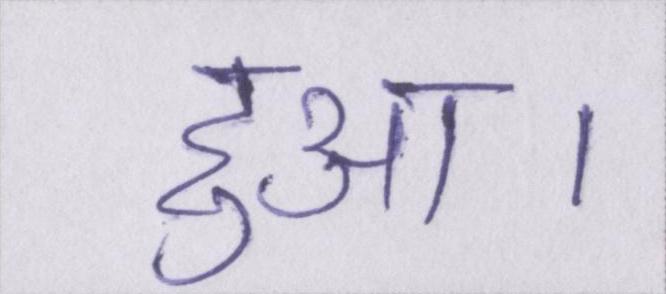 हुआ ।